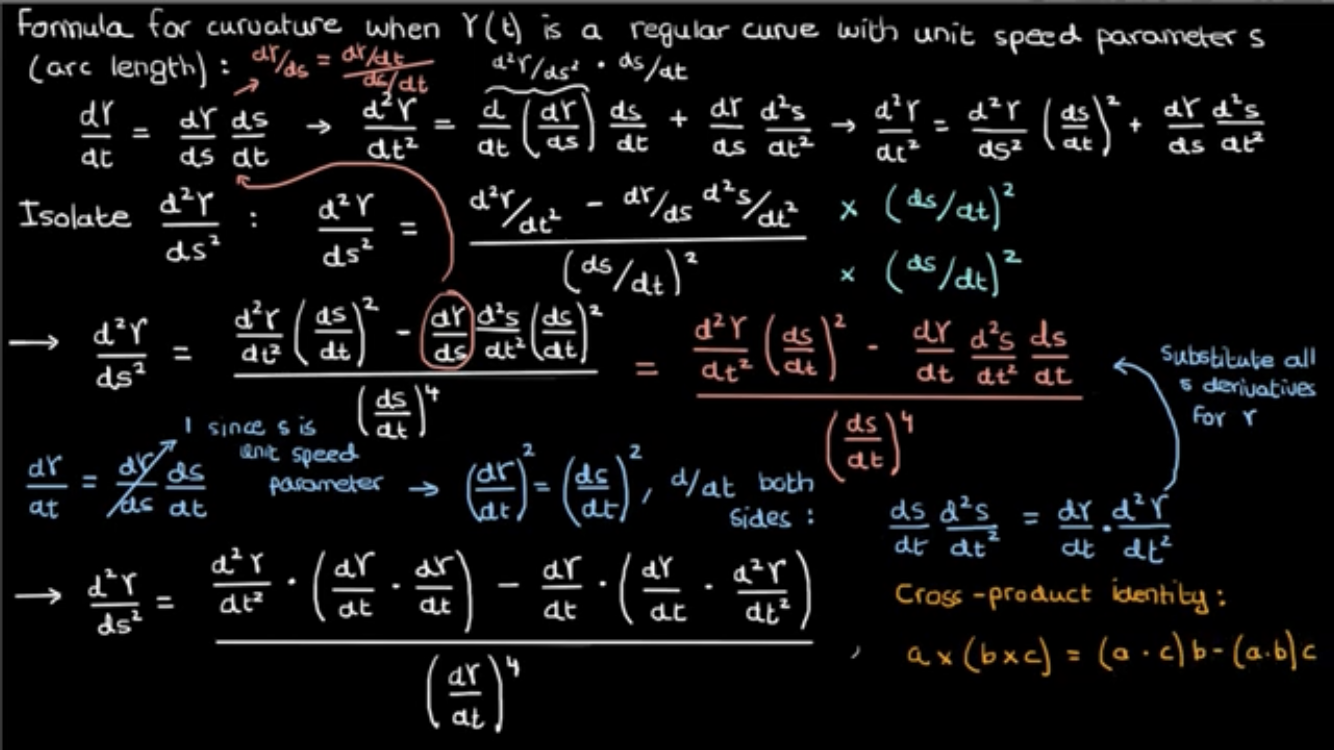 Formula for curvature when γ(t) is a regular curve with unit speed parameter s
(arc length): dγ/ds = (dγ/dt)/(ds/dt)    d²γ/ds² · ds/dt
dγ/dt = dγ/ds ds/dt → d²γ/dt² = d/dt (dγ/ds) ds/dt + dγ/ds d²s/dt² → d²γ/dt² = d²γ/ds² (ds/dt)² + dγ/ds d²s/dt²
Isolate d²γ/ds² : d²γ/ds² = (d²γ/dt² - dγ/ds d²s/dt²)/(ds/dt)² × (ds/dt)² × (ds/dt)²
→ d²γ/ds² = (d²γ/dt² (ds/dt)² - dγ/ds d²s/dt² (ds/dt)²)/(ds/dt)⁴ = (d²γ/dt² (ds/dt)² - dγ/dt d²s/dt² ds/dt)/(ds/dt)⁴
Substitute all
s derivatives
for γ
1 since s is
unit speed
parameter
dγ/dt = dγ/ds ds/dt → (dγ/dt)² = (ds/dt)², d/dt both
sides :
ds/dt d²s/dt² = dγ/dt · d²γ/dt²
→ d²γ/ds² = (d²γ/dt² · (dγ/dt · dγ/dt) - dγ/dt · (dγ/dt · d²γ/dt²))/(dγ/dt)⁴ ,
Cross-product identity:
a × (b×c) = (a · c) b - (a·b) c